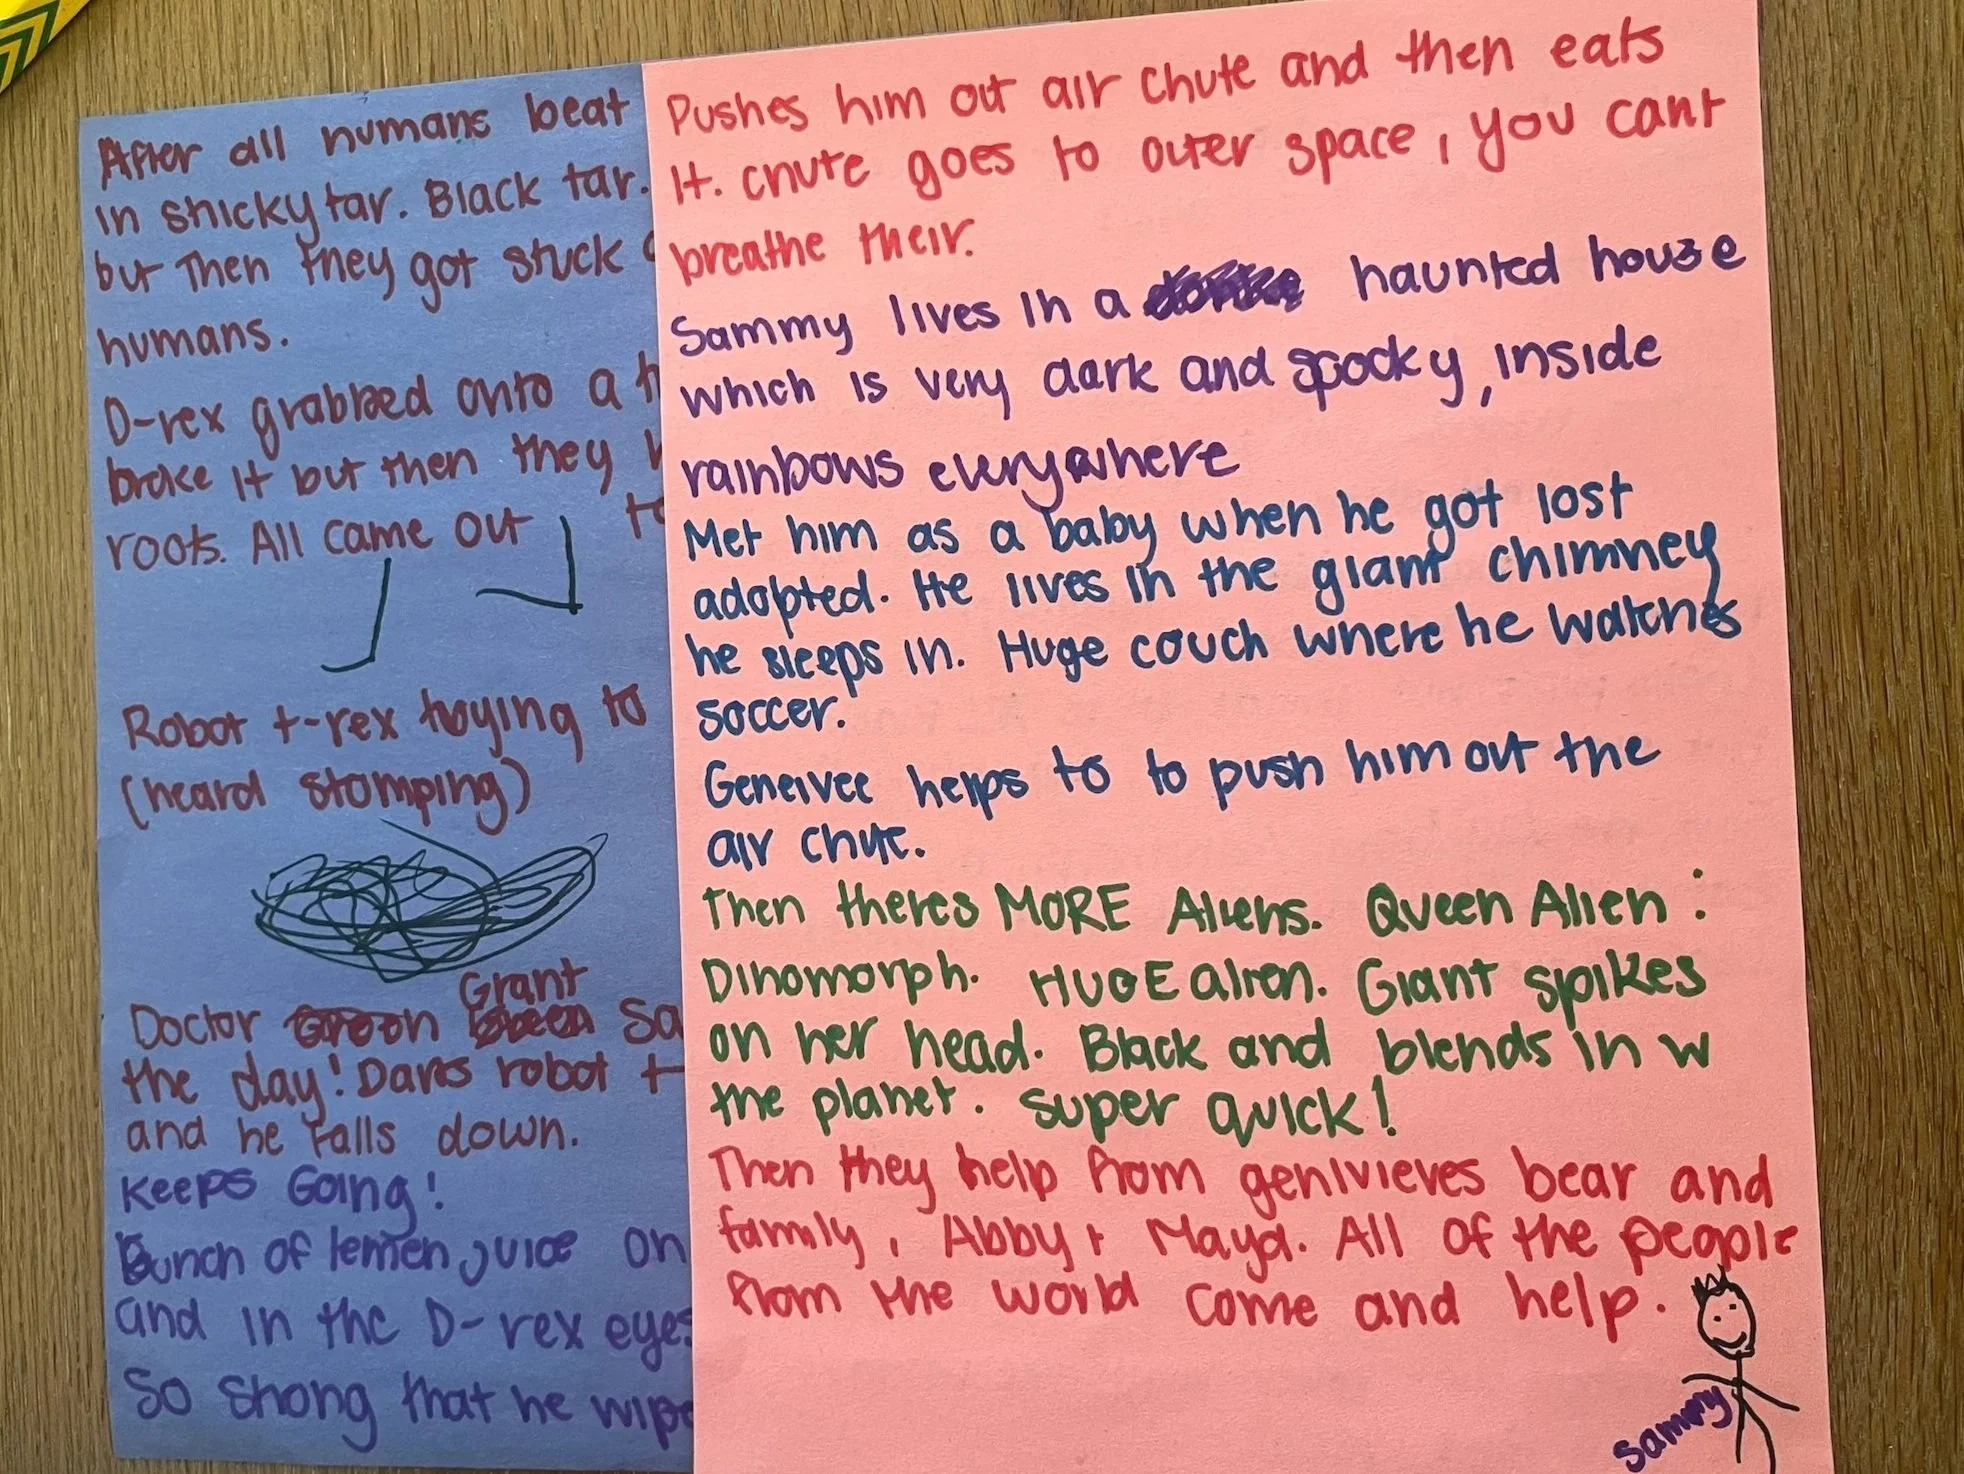 After all humans beat
in shicky tar. Black tar.
but Then they got stuck
humans.
D-rex grabbed onto a
broke it but then they
roots. All came out to
Robot t-rex trying to
(heard stomping)
Grant
Doctor Sa
the day! Darts robot t-
and he falls down.
Keeps Going!
Bunch of lemen juice on
and in the D-rex eyes
So shong that he wipe
Pushes him out air chute and then eats
it. chute goes to outer space, you cant
breathe their.
Sammy lives in a haunted house
which is very dark and spooky, inside
rainbows everywhere
Met him as a baby when he got lost
adopted. He lives in the giant chimney
he sleeps in. Huge couch where he watches
soccer.
Geneivee helps to to push him out the
air chute.
Then theres MORE Aliens. Queen Alien:
Dinomorph. HUGE alien. Giant spikes
on her head. Black and blends in w
the planet. super quick!
Then they help from genivieves bear and
family, Abby + Maya. All of the people
from the world come and help.
Sammy